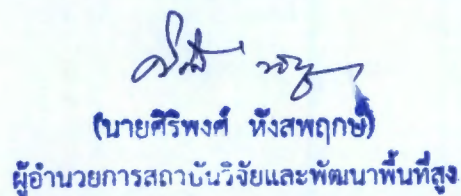 (นายศิริพงศ์ หังสพฤกษ์)
ผู้อำนวยการสถาบันวิจัยและพัฒนาพื้นที่สูง